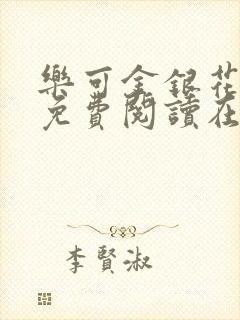 樂可金銀花
免費閱讀在
李賢淑